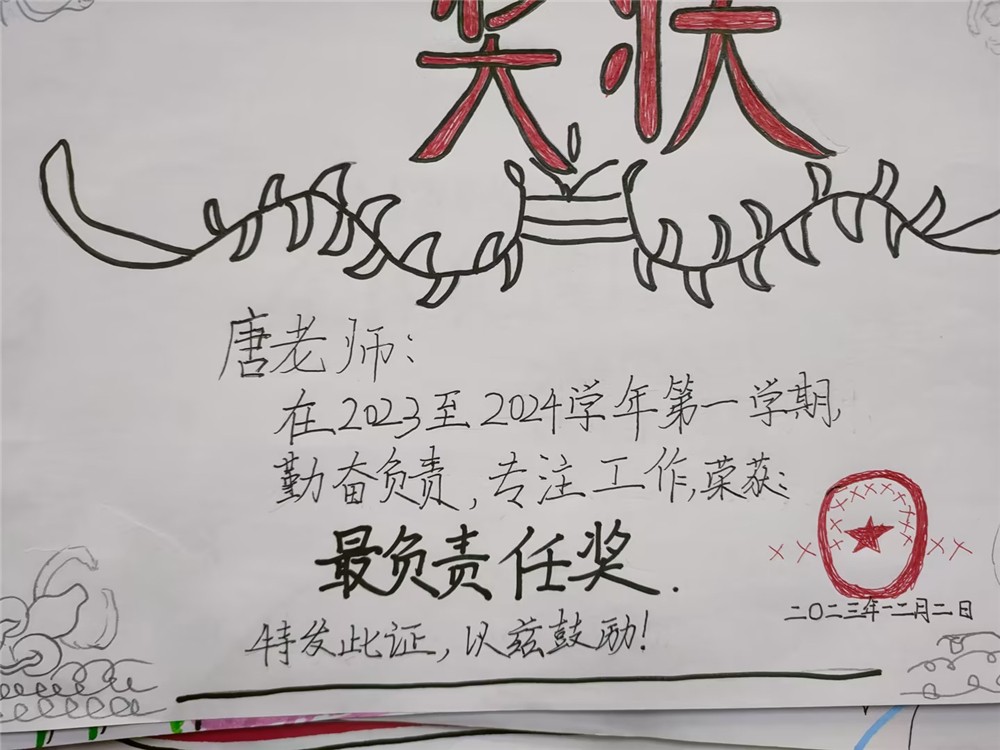 奖状
唐老师：
在2023至2024学年第一学期,
勤奋负责,专注工作,荣获:
最负责任奖.
特发此证,以兹鼓励!
二〇二三年一二月二日